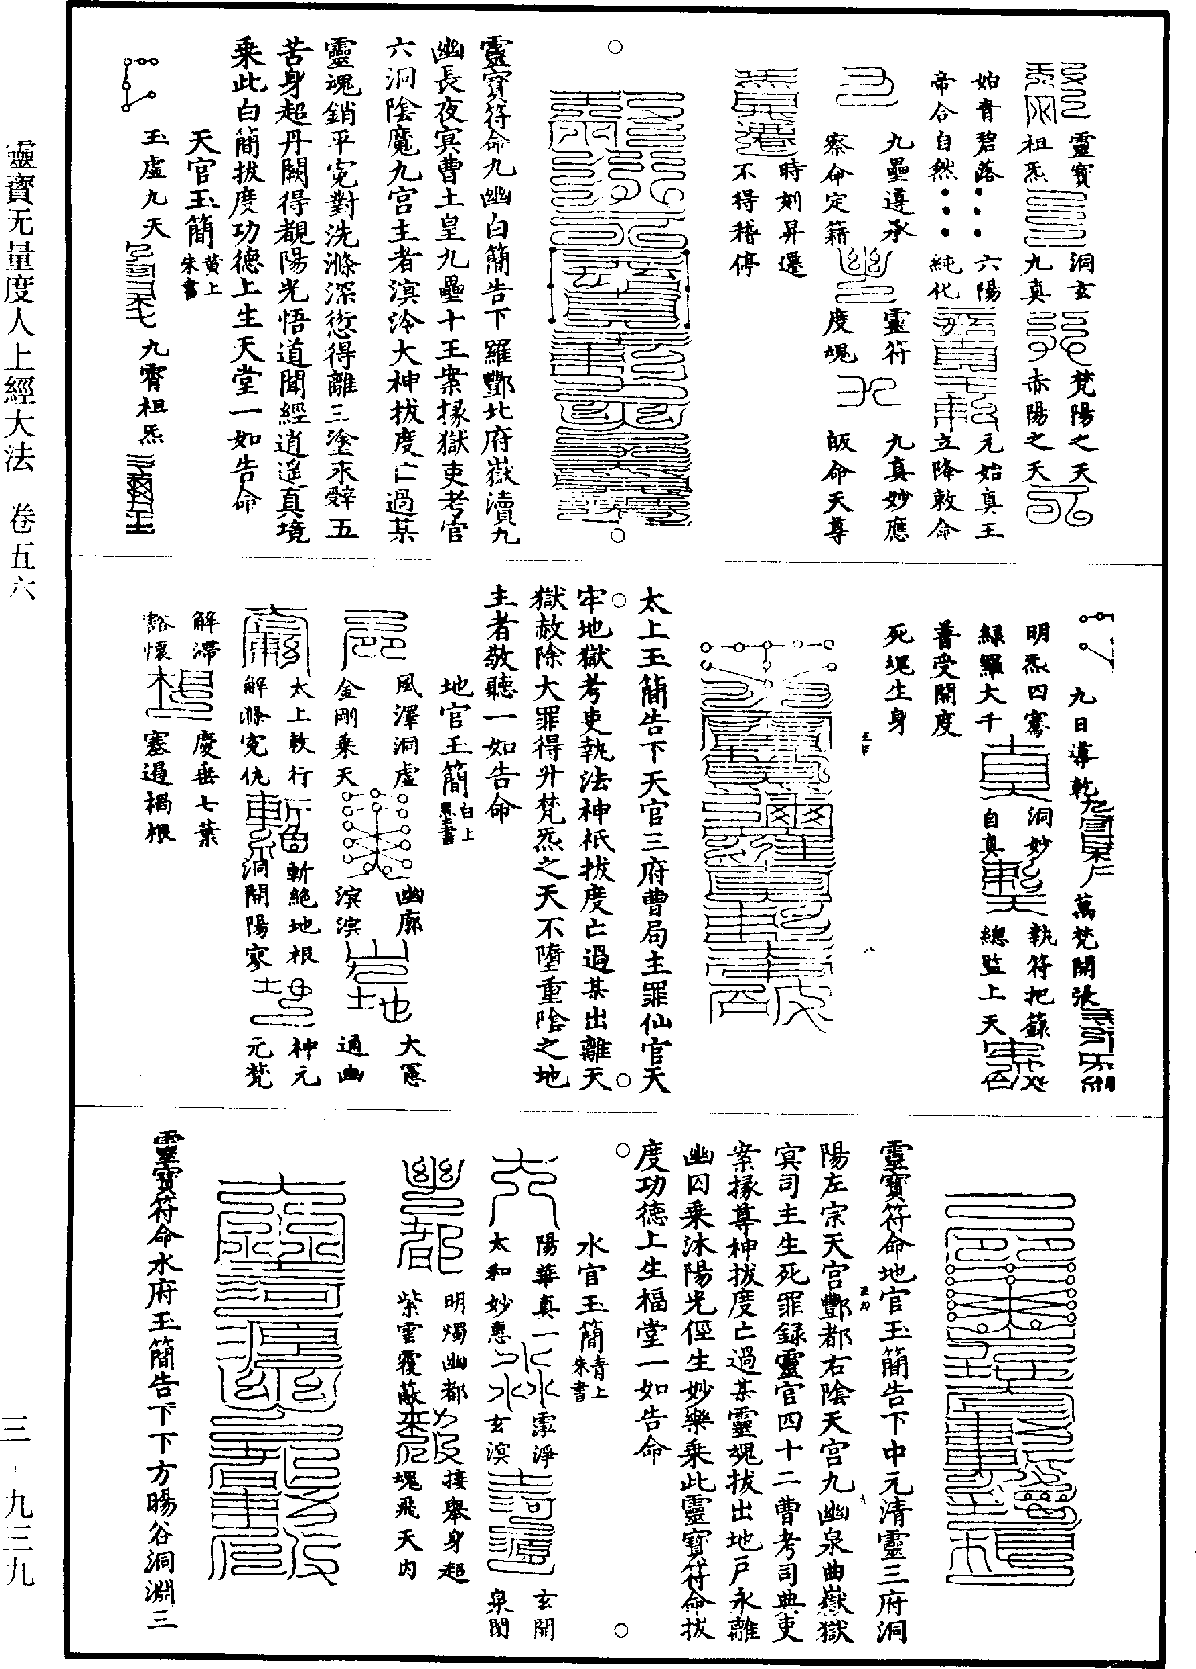 靈寶无量度人上經大法　卷五六
三－九三九
靈寶　洞玄　梵陽之天
祖炁　九真　赤陽之天
始青碧落　六陽　元始真王
帝合自然　純化　立降敕命
九壘遵承　靈符　九真妙應
察命定籍　度魂　皈命天尊
時刻昇遷
不得稽停
靈寶符命九幽白簡告下羅酆北府嶽瀆九
幽長夜冥曹土皇九壘十王案掾獄吏考官
六洞陰魔九宮主者溟泠大神拔度亡過某
靈魂銷平冤對洗滌深愆得離三塗永辭五
苦身超丹闕得覩陽光悟道聞經逍遥真境
乘此白簡拔度功德上生天堂一如告命
天官玉簡黃上朱書
玉虛九天　九霄祖炁
九日導乾　萬梵開張
明炁四騫　洞妙　執符把籙
綠羅大千　自真　總監上天
普受開度
死魂生身
太上玉簡告下天官三府曹局主罪仙官天
牢地獄考吏執法神祇拔度亡過某出離天
獄赦除大罪得升梵炁之天不墮重陰之地
主者敬聽一如告命
地官玉簡白上黑書
風澤洞虛　幽廓　大冥
金剛乘天　溟溟　通幽
太上敕行　斬絶地根　神元
解滌冤仇　洞開陽家　元梵
解滯　慶垂七葉
豁懷　塞過楬根
靈寶符命地官玉簡告下中元清靈三府洞
陽左宗天宮酆都右陰天宮九幽泉曲嶽獄
冥司主生死罪録靈官四十二曹考司典吏
案掾尊神拔度亡過某靈魂拔出地戸永離
幽囚乘沐陽光徑生妙樂乘此靈寶符命拔
度功德上生福堂一如告命
水官玉簡青上朱書
陽華真一　澤淨　玄開
太和妙惠　玄溟　泉閉
明燭幽都　接舉身超
紫雲覆蔽　魂飛天内
靈寶符命水府玉簡告下下方暘谷洞淵三